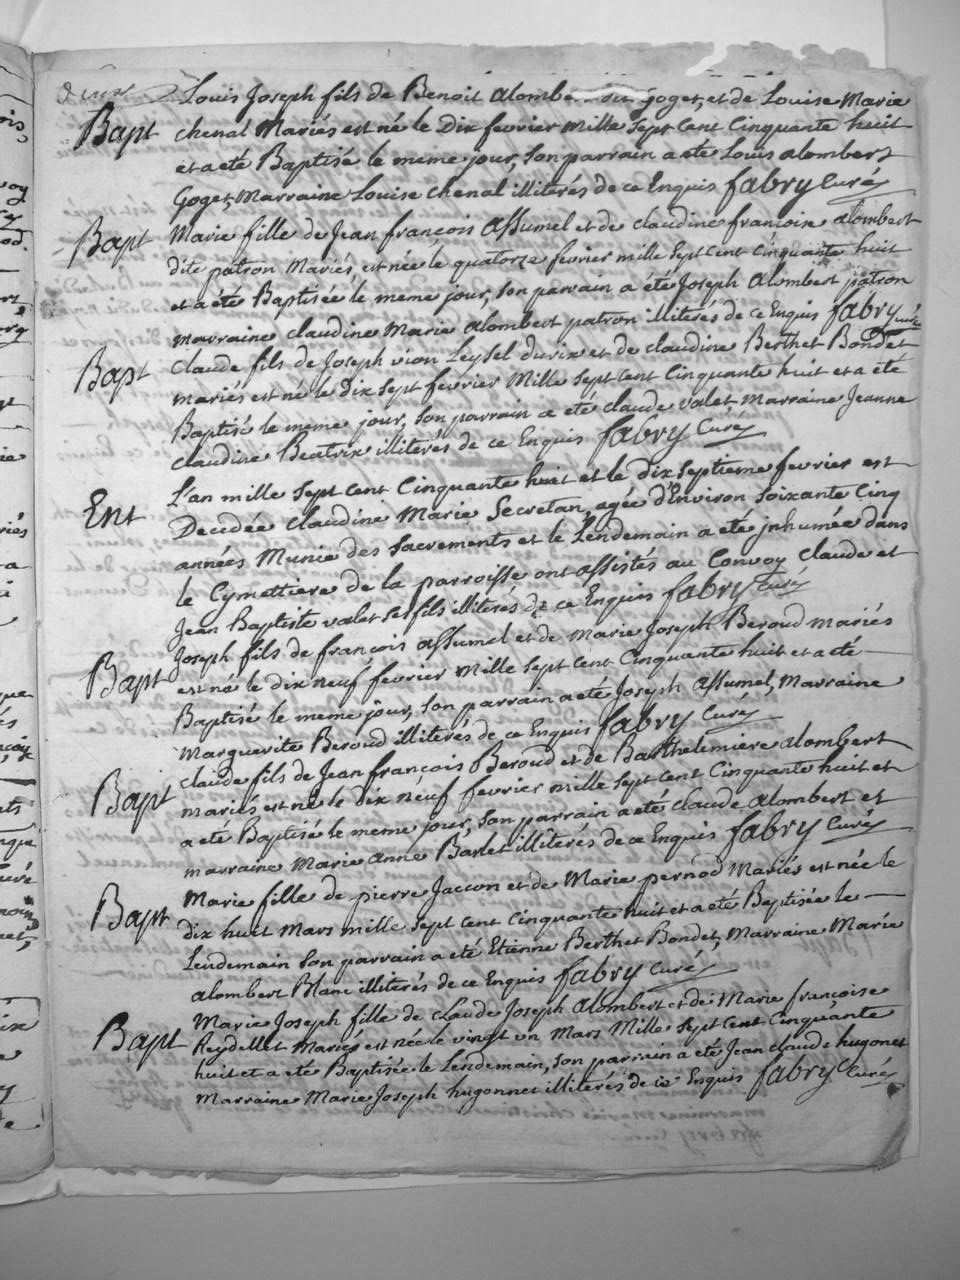 Bapt Louis Joseph fils de Benoit alombe Goget, et de Louise Marie
chenal Mariés est né le Dix fevrier Mille sept cent Cinquante huit
et a eté Baptisé le meme jour, son parrain a ete Louis alombert
Goget, Marraine Louise chenal illiterés de ce Enquis fabry Curé
Bapt Marie fille de Jean françois Assumel et de claudine françoise alombert
dite patron Mariés est née le quatorze fevrier mille sept cent cinquante huit
et a été Baptisée le meme jour, son parrain a été Joseph alombert patron
marraine claudine Marie alombert patron illiterés de ce Enquis fabry curé
Bapt Claude fils de Joseph vion Leysel durix et de claudine Berthet Bondet
mariés est né le Dix sept fevrier Mille sept cent Cinquante huit et a été
Baptisé le meme jour, son parrain a été claude valet Marraine Jeanne
claudine Beatrix illiterés de ce Enquis fabry Curé
Ent L'an mille sept cent Cinquante huit et le dix septieme fevrier est
Decidée claudine Marie Secretan, agée d'Environ soixante Cinq
années Munie des sacrements et le Lendemain a été jnhumée dans
le Cymettiere de la parroisse ont assistés au Convoy claude et
Jean Baptiste valet ses fils illiterés de ce Enquis fabry Curé
Bapt Joseph fils de françois assumel et de Marie Joseph Beroud mariés
est né le dix neuf fevrier Mille sept cent Cinquante huit et a eté
Baptisé le meme jour, son parrain a eté Joseph assumel, Marraine
Marguerite Beroud illiterés de ce Enquis fabry Curé
Bapt claude fils de Jean françois Beroud et de Barthelemiere alombert
mariés est né le dix neuf fevrier mille sept cent Cinquante huit et
a eté Baptisé le meme jour, son parrain a eté claude alombert et
marraine Marie anne Barlet illiterés de ce Enquis fabry Curé
Bapt Marie fille de pierre Jaccon et de Marie pernod Mariés est née le
dix huit Mars mille sept cent cinquante huit et a été Baptisée le
Lendemain son parrain a eté Etienne Berthet Bondet, Marraine Marie
alombert Blanc illiterés de ce Enquis fabry Curé
Bapt Marie Joseph fille de claude Joseph alombert et de Marie françoise
Reydellet Mariés est née le vingt un Mars Mille sept cent Cinquante
huit et a eté Baptisée le Lendemain, son parrain a eté Jean claude hugonet
Marraine Marie Joseph hugonnet illiterés de ce Enquis fabry Curé